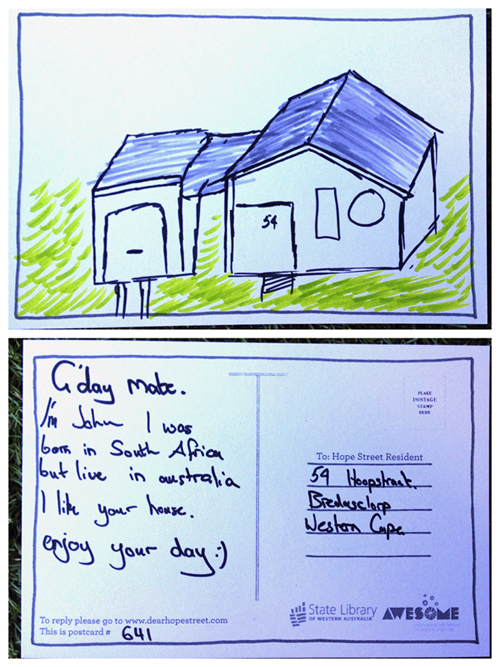 54
G'day mate.
I'm John I was
born in South Africa
but live in australia
I like your house.
enjoy your day :)
PLACE
POSTAGE
STAMP
HERE
To: Hope Street Resident
54 Hoopstraat.
Bredasdorp
Western Cape
State Library
OF WESTERN AUSTRALIA
AWESOME
To reply please go to www.dearhopestreet.com
This is postcard # 641